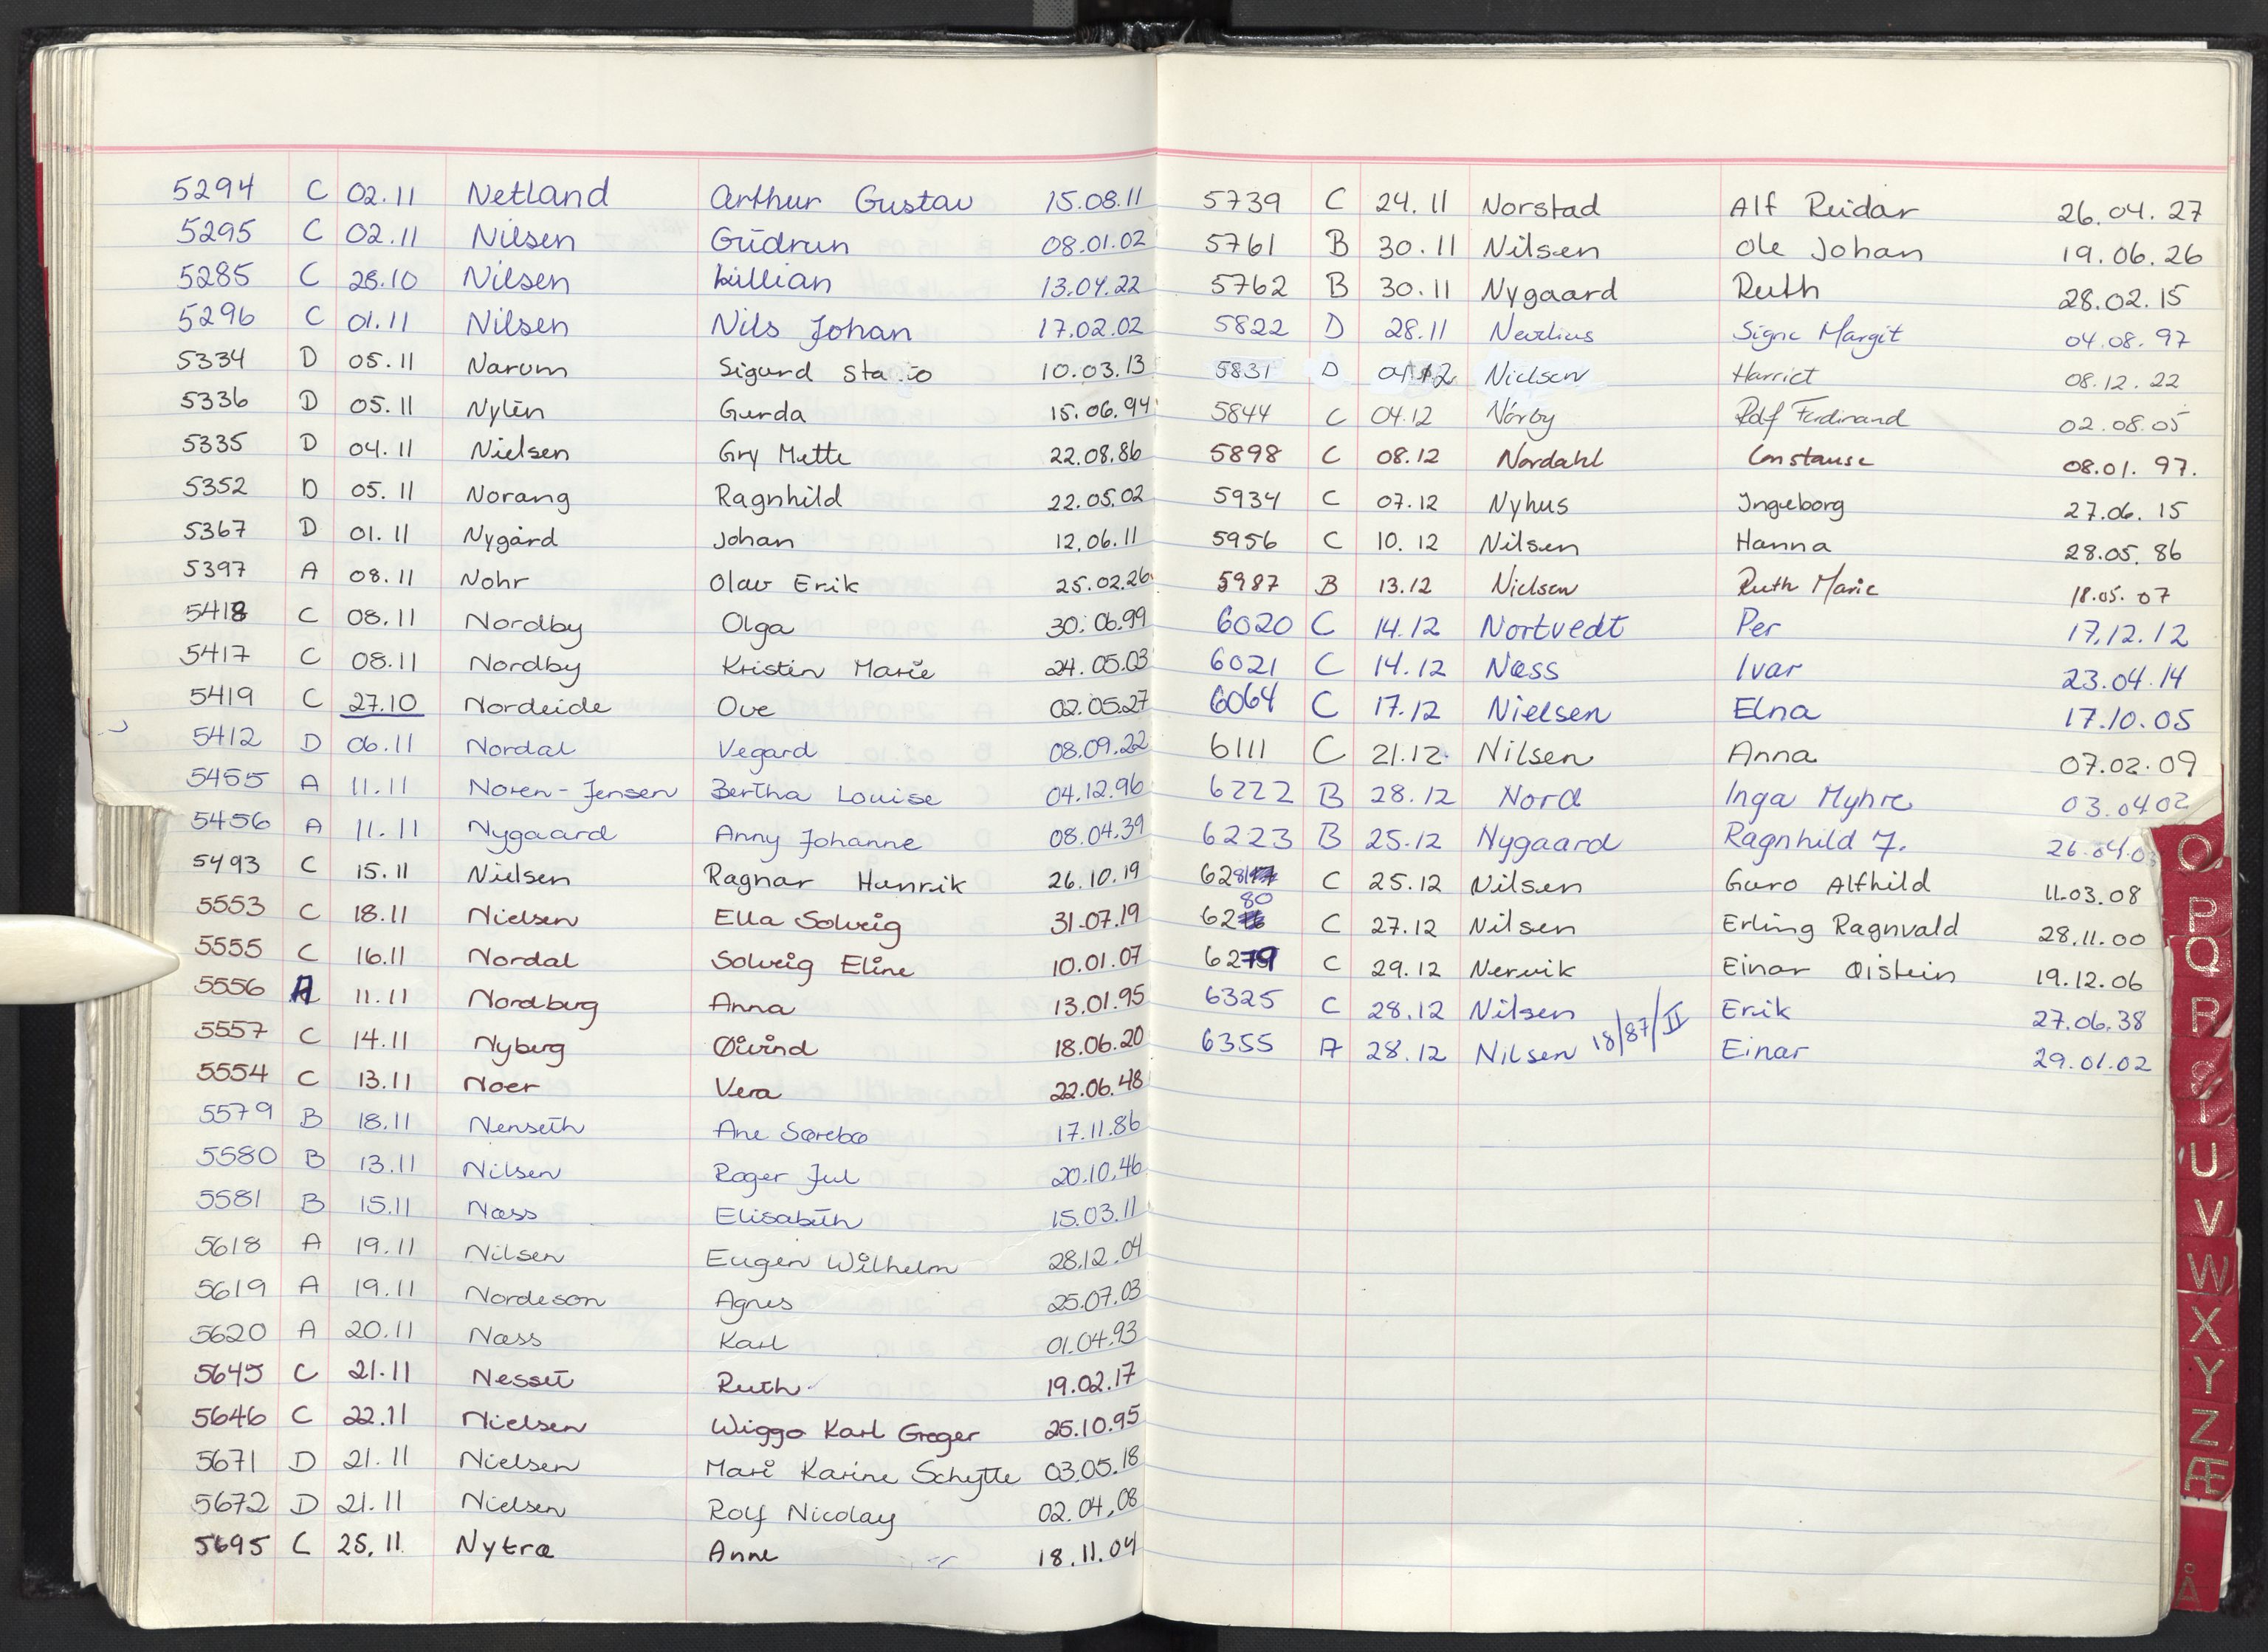 5294 C 02.11 Netland Arthur Gustav 15.08.11
5295 C 02.11 Nilsen Gudrun 08.01.02
5285 C 28.10 Nilsen Lillian 13.04.22
5296 C 01.11 Nilsen Nils Johan 17.02.02
5334 D 05.11 Narum Sigurd 10.03.13
5336 D 05.11 Nylén Gerda 15.06.94
5335 D 04.11 Nielsen Gry Mette 22.08.86
5352 D 05.11 Norang Ragnhild 22.05.02
5367 D 01.11 Nygård Johan 12.06.11
5397 A 08.11 Nohr Olav Erik 25.02.26
5418 C 08.11 Nordby Olga 30.06.99
5417 C 08.11 Nordby Kristin Marie 24.05.03
5419 C 27.10 Nordeide Ove 02.05.27
5412 D 06.11 Nordal Vegard 08.09.22
5455 A 11.11 Noren-Jensen Bertha Louise 04.12.96
5456 A 11.11 Nygaard Anny Johanne 08.04.39
5493 C 15.11 Nielsen Ragnar Henrik 26.10.19
5553 C 18.11 Nielsen Ella Solveig 31.07.19
5555 C 16.11 Nordal Solveig Eline 10.01.07
5556 A 11.11 Nordberg Anna 13.01.95
5557 C 14.11 Nyberg Øivind 18.06.20
5554 C 13.11 Noer Vera 22.06.48
5579 B 18.11 Nenseth Ane Sørebø 17.11.86
5580 B 13.11 Nilsen Roger Jul 20.10.46
5581 B 15.11 Næss Elisabeth 15.03.11
5618 A 19.11 Nilsen Eugen Wilhelm 28.12.04
5619 A 19.11 Nordeson Agnes 25.07.03
5620 A 20.11 Næss Karl 01.04.93
5645 C 21.11 Nesset Ruth 19.02.17
5646 C 22.11 Nielsen Wiggo Karl Grøger 25.10.95
5671 D 21.11 Nielsen Mari Karine Schytte 03.05.18
5672 D 21.11 Nielsen Rolf Nicolay 02.04.08
5695 C 25.11 Nytrø Anne 18.11.04
5739 C 24.11 Norstad Alf Reidar 26.04.27
5761 B 30.11 Nilsen Ole Johan 19.06.26
5762 B 30.11 Nygaard Ruth 28.02.15
5822 D 28.11 Signe Margit 04.08.97
5831 D Nielsen Harriet 08.12.22
5844 C 04.12 Nórby Rolf Ferdinand 02.08.05
5898 C 08.12 Nordahl Constanse 08.01.97.
5934 C 07.12 Nyhus Ingeborg 27.06.15
5956 C 10.12 Nilsen Hanna 28.05.86
5987 B 13.12 Nielsen Ruth Marie 18.05.07
6020 C 14.12 Nortvedt Per 17.12.12
6021 C 14.12 Næss Ivar 23.04.14
6064 C 17.12 Nielsen Elna 17.10.05
6111 C 21.12 Nilsen Anna 07.02.09
6222 B 28.12 Nord Inga Myhre 03.0402
6223 B 25.12 Nygaard Ragnhild J. 26.04.0
6281 C 25.12 Nilsen Guro Alfhild 11.03.08
6280 C 27.12 Nilsen Erling Ragnvald 28.11.00
6279 C 29.12 Nervik Einar Øistein 19.12.06
6325 C 28.12 Nilsen Erik 27.06.38
6355 A 28.12 Nilsen 18/87/II Einar 29.01.02
O
P
Q
R
S
T
U
V
W
X
Y
Z
Æ
Å